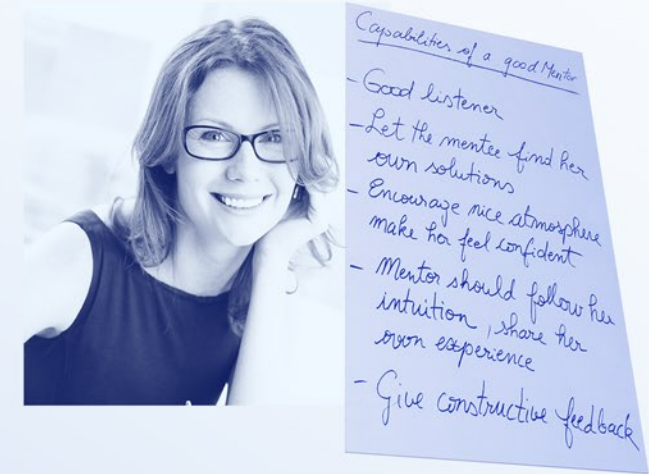 Capabilities of a good Mentor
- Good listener
- Let the mentee find her
own solutions
- Encourage nice atmosphere
make her feel confident
- Mentor should follow her
intuition, share her
own experience
- Give constructive feedback